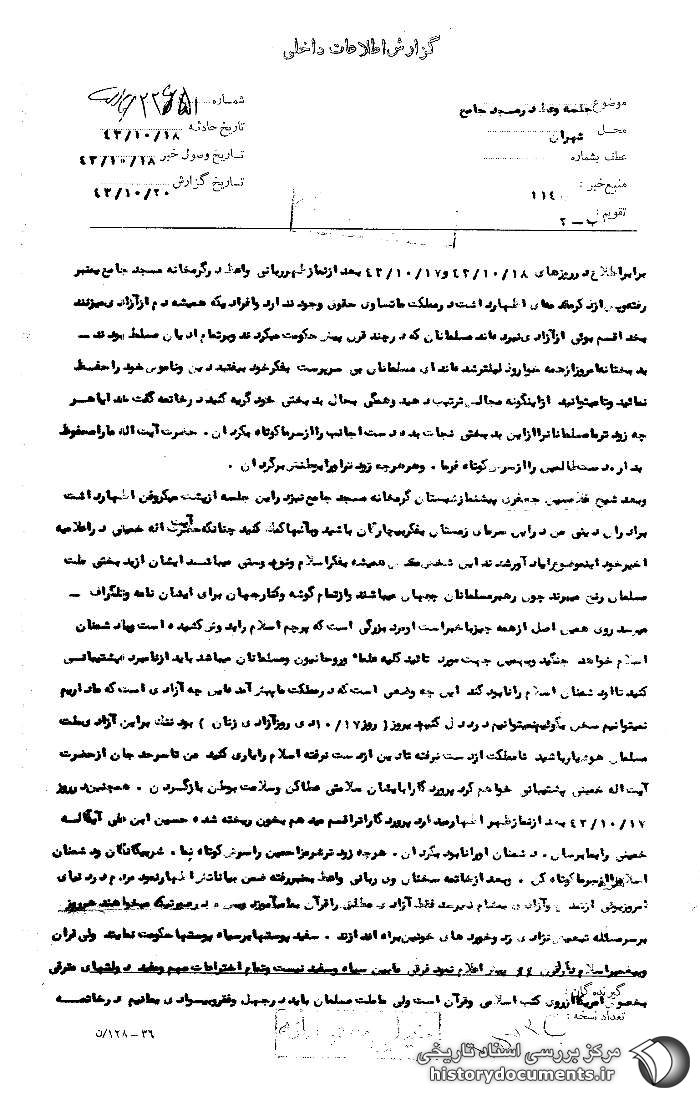 گزارش اطلاعات داخلی
موضوع جلسه وعظ در مسجد جامع
شماره
محل تهران
تاریخ حادثه ۴۳/۱۰/۱۸
عطف بشماره
تاریخ وصول خبر ۴۳/۱۰/۱۸
منبع خبر: ۱۱۴۰
تاریخ گزارش ۴۳/۱۰/۲۰
تقویم: ب - ۲
برابر اطلاع در روزهای ۴۳/۱۰/۱۸ و ۴۳/۱۰/۱۷ بعد از نماز ظهر ربانی واعظ در گرمخانه مسجد جامع بمنبر
رفته اظهار داشت در مملکت ما تساوی حقوق وجود ندارد و افرادیکه همیشه دم از آزادی میزنند
بخدا قسم بوئی از آزادی نبرده اند مسلمانان که در چند قرن پیش حکومت میکردند و بر تمام ادیان مسلط بودند ـ
بدبختانه امروز از همه خوار و ذلیلتر شده اند ای مسلمانان بی سرپرست بفکر خود بیفتید دین و ناموس خود را حفظ
نمائید و تا میتوانید از اینگونه مجالس ترتیب دهید و همگی بحال بدبختی خود گریه کنید در خاتمه گفت خدایا هر
چه زودتر ما مسلمانانرا از این بدبختی نجات بده دست اجانب را از سر ما کوتاه بگردان. حضرت آیت اله ما را محفوظ
بدار. دست ظالمین را از سرش کوتاه فرما. و هر چه زودتر او را بوطنش برگردان.
و بعد شیخ غلامحسین جعفری پیشنماز شبستان گرمخانه مسجد جامع نیز در این جلسه از پشت میکروفن اظهار داشت
برادران دینی من در این سرمای زمستان بفکر بیچارگان باشید و بآنها کمک کنید چنانکه حضرت آیت اله خمینی در اعلامیه
اخیر خود این موضوع را یاد آور شدند این شخص همیشه بفکر اسلام و نوع دوستی میباشد ایشان از بدبختی ملت
مسلمان رنج میبرند چون رهبر مسلمانان جهان میباشند و از تمام گوشه و کنار جهان برای ایشان نامه و تلگراف ـ
میرسد روی همین اصل از همه چیز با خبر است او مرد بزرگی است که پرچم اسلام را بدوش کشیده است و با دشمنان
اسلام خواهد جنگید و بهمین جهت مورد تائید کلیه علماء و روحانیون و مسلمانان میباشد باید از نامبرده پشتیبانی
کنید تا او دشمنان اسلام را نابود کند این چه وضعی است که در مملکت ما پیش آمده این چه آزادی است که ما داریم
نمیتوانیم سخنی بگوئیم نمیتوانیم درد دل کنیم دیروز ( روز ۱۰/۱۷ دی روز آزادی زنان ) بود ننگ بر این آزادی ملت
مسلمان هوشیار باشید تا مملکت از دست نرفته تا دین از دست نرفته اسلام را یاری کنید من تا سرحد جان از حضرت
آیت اله خمینی پشتیبانی خواهم کرد پروردگارا بایشان سلامتی عطا کن و سلامت بوطن باز گردان. همچنین در روز
۴۳/۱۰/۱۷ بعد از نماز ظهر اظهار میدارد پروردگارا ترا قسم میدهم بخون ریخته شده حسین ابن علی آیت اله
خمینی را بما برسان. دشمنان او را نابود بگردان. هر چه زودتر شر مزاحمین را از سرش کوتاه نما. شر بیگانگان و دشمنان
اسلام را از سر ما کوتاه کن. و بعد از خاتمه سخنان وی ربانی واعظ بمنبر رفته ضمن بیاناتش اظهار نمود مردم در دنیای
امروز بوئی از تمدن و آزادی بمشام نمیرسد فقط آزادی مطلق را قرآن بما میآموزد و بس در صورتیکه میخواهند هر روز
بر سر مسئله تبعیض نژادی زد و خورد های خونین براه اندازند. سفید پوستها بر سیاه پوستها حکومت نمایند ولی قرآن
و پیغمبر اسلام در قرن پیش اعلام نمود فرقی مابین سیاه و سفید نیست و تمام اختراعات مهم و مفید دولتهای مترقی
بخصوص امریکا از روی کتب اسلامی و قرآن است ولی ما ملت مسلمان باید در جهل و فقر و بیسوادی بمانیم در خاتمه
گیرندگان:
تعداد نسخه:
۳۶ - ۵/۱۲۸
مرکز بررسی اسناد تاریخی
historydocuments.ir